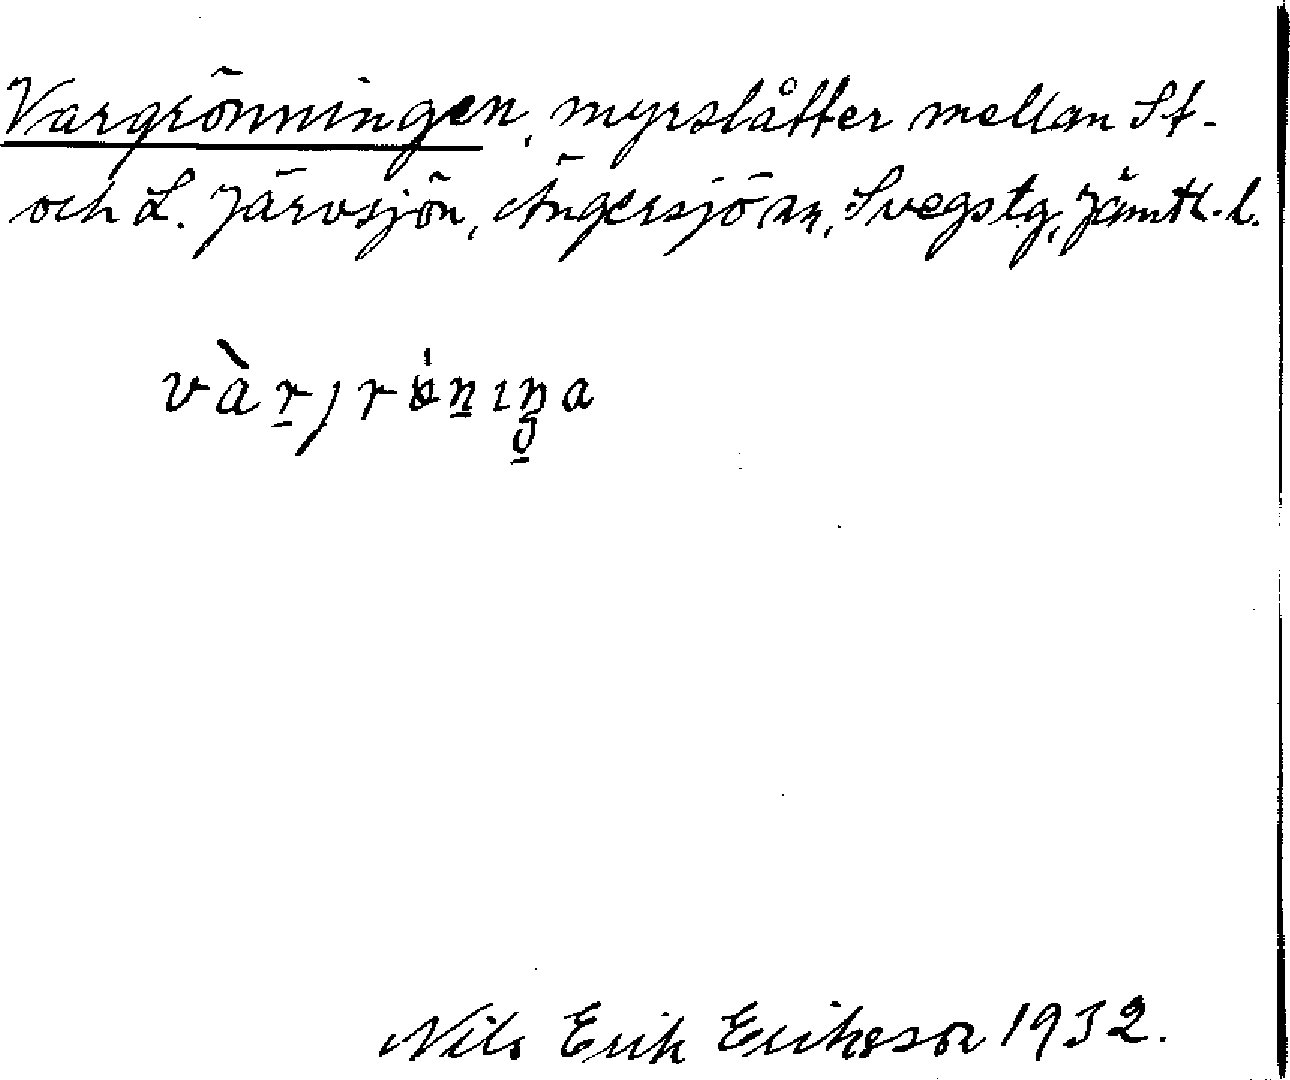 Vargrönningen, myrslåtter mellan St-
och L. Järvsjön, Ängersjö sn, Svegs tg, Jämtl. l.
Nils Erik Eriksson 1932.